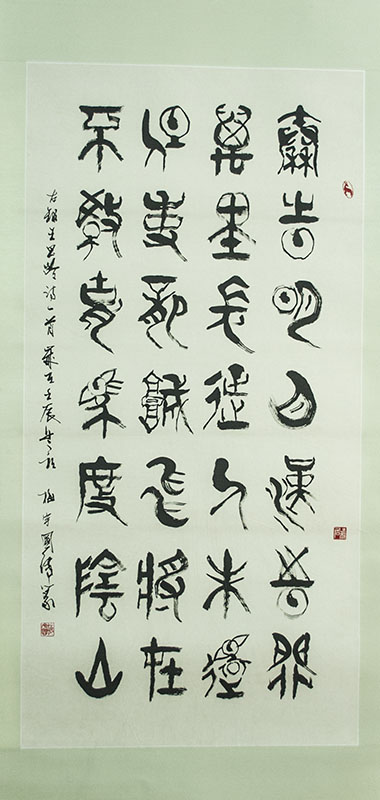 秦時明月漢時關
萬里長征人未還
但使龍城飛將在
不教胡馬度陰山
右録王昌齡詩一首歲在壬辰